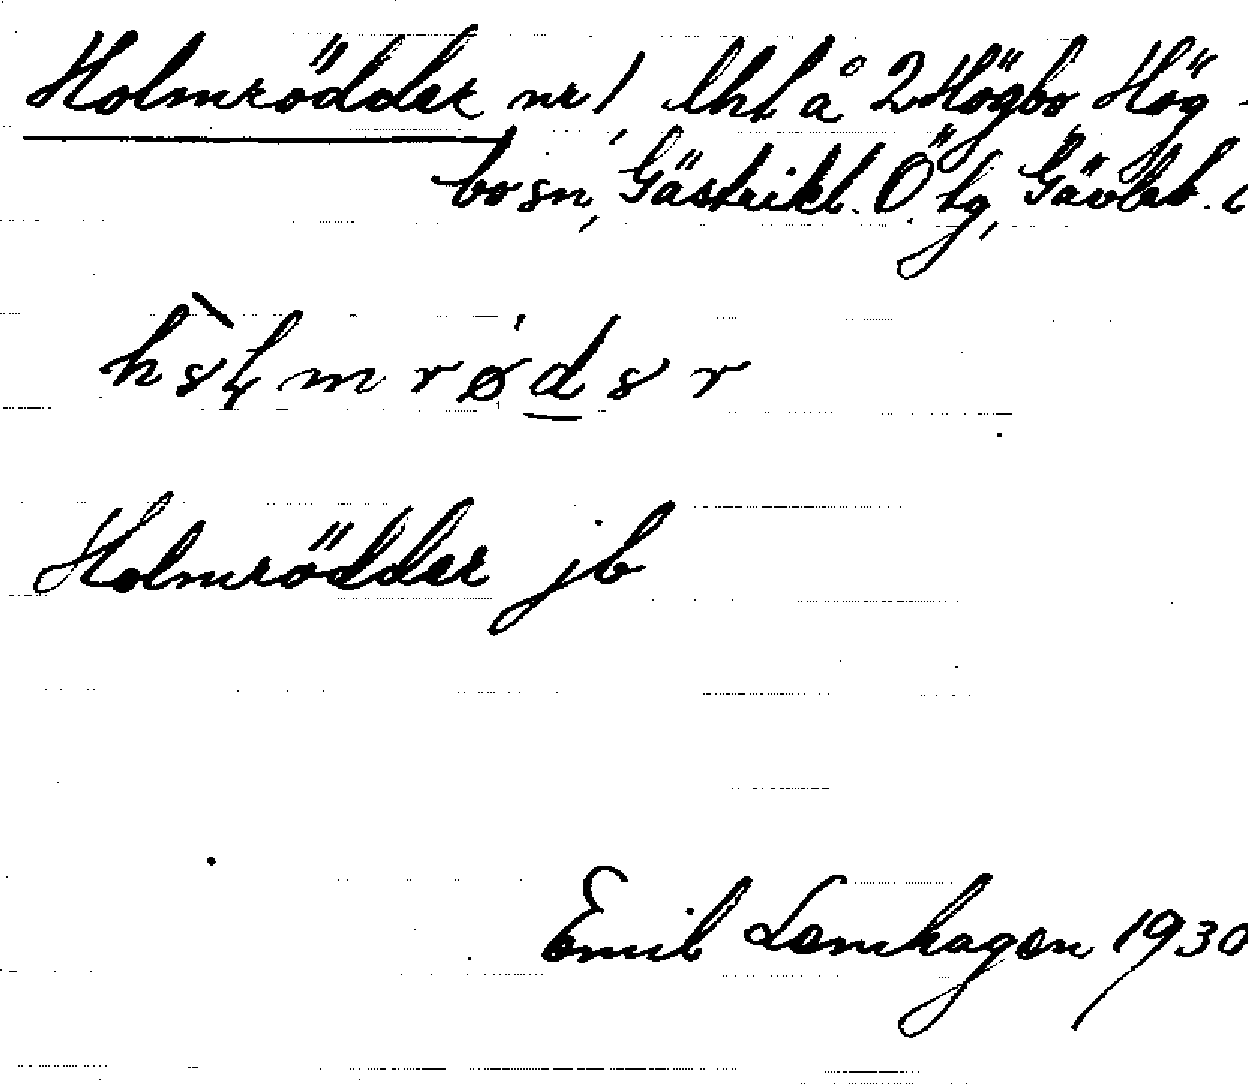 Holmrödder nr 1, lht å 2 Högbo Hög-
bo sn, Gästrikl. Ö. tg, Gävleb. l
Holmrödder jb
Emil Lemhagen 1930